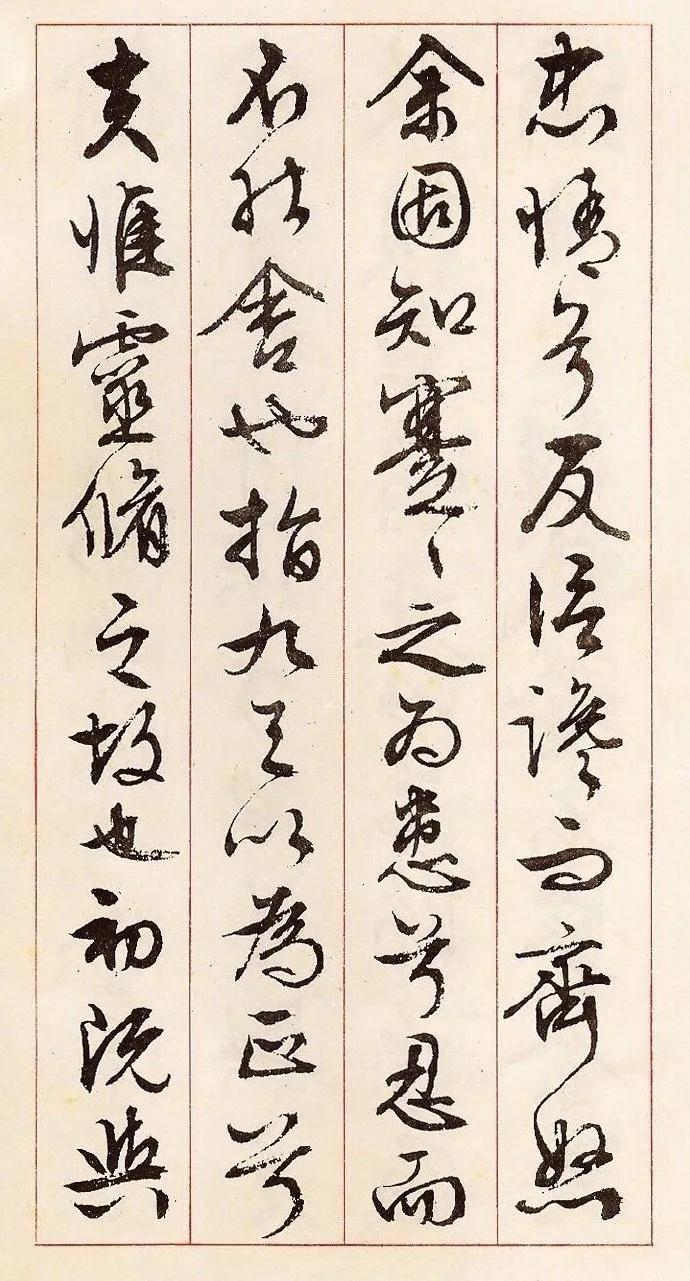 忠情兮反信讒而齊怒
余固知謇〻之為患兮忍而
不能舍也指九天以為正兮
夫惟靈脩之故也初既與